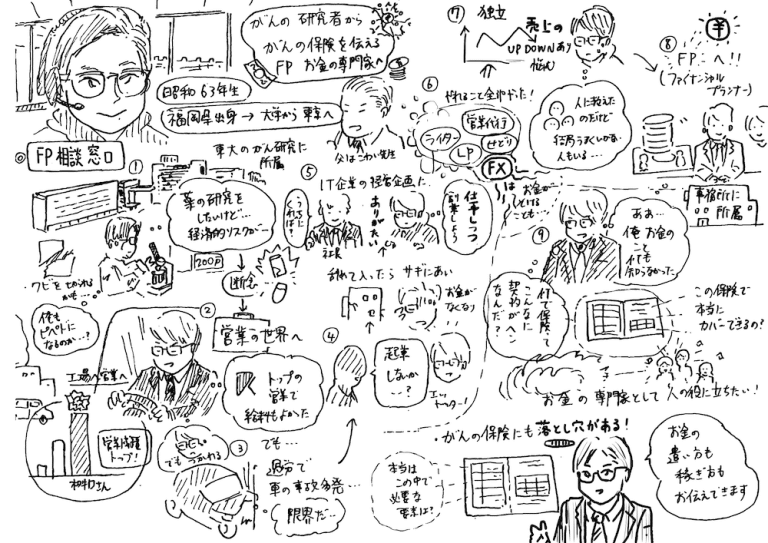 がんの研究者から
がんの保険を伝える
FP お金の専門家へ
昭和63年生
福岡県出身→大学から東京へ
父はこわい先生
FP相談窓口
①
東大のがん研究に
所属
薬の研究を
したいけど…
経済的リスクが…
200円
断念
クビを切られる
かも…
俺も
ピペットに
なるのか…?
②
営業の世界へ
工場へ営業へ
トップの
営業で
給料もよかった
営業成績
トップ!
和知さん
③
でもつかれる
でも…
過労で
車の事故多発…
限界だ…
④
起業
しないか
…?
エッ
ドッキリー!
⑤
IT企業の経営企画に
うちに
くれば?
社長
ありがたい
仕事しつつ
副業しよう
辞めて入ったら サギにあい
お金が
なくなり
⑥
やれること全部やった!
ライター
営業代行
LP
せどり
FX
は
お金が
とける
ことも…
⑦
独立
売上の
UP DOWNあり
悩む
人に教えた
のだけど
結局うまくいかない
人もいる…
⑧
FPへ!!
(ファイナンシャル
プランナー)
事務所に
所属
⑨
ああ…
俺お金の
こと
何も
知らなかった
何で保険て
こんなに
契約がヘン
なんだ?
この保険で
本当に
カバーできるの?
お金の専門家として人の役に立ちたい!
・がんの保険にも落とし穴がある!
本当は
この中で
必要な
要素は?
お金の
遣い方も
稼ぎ方も
お伝えできます